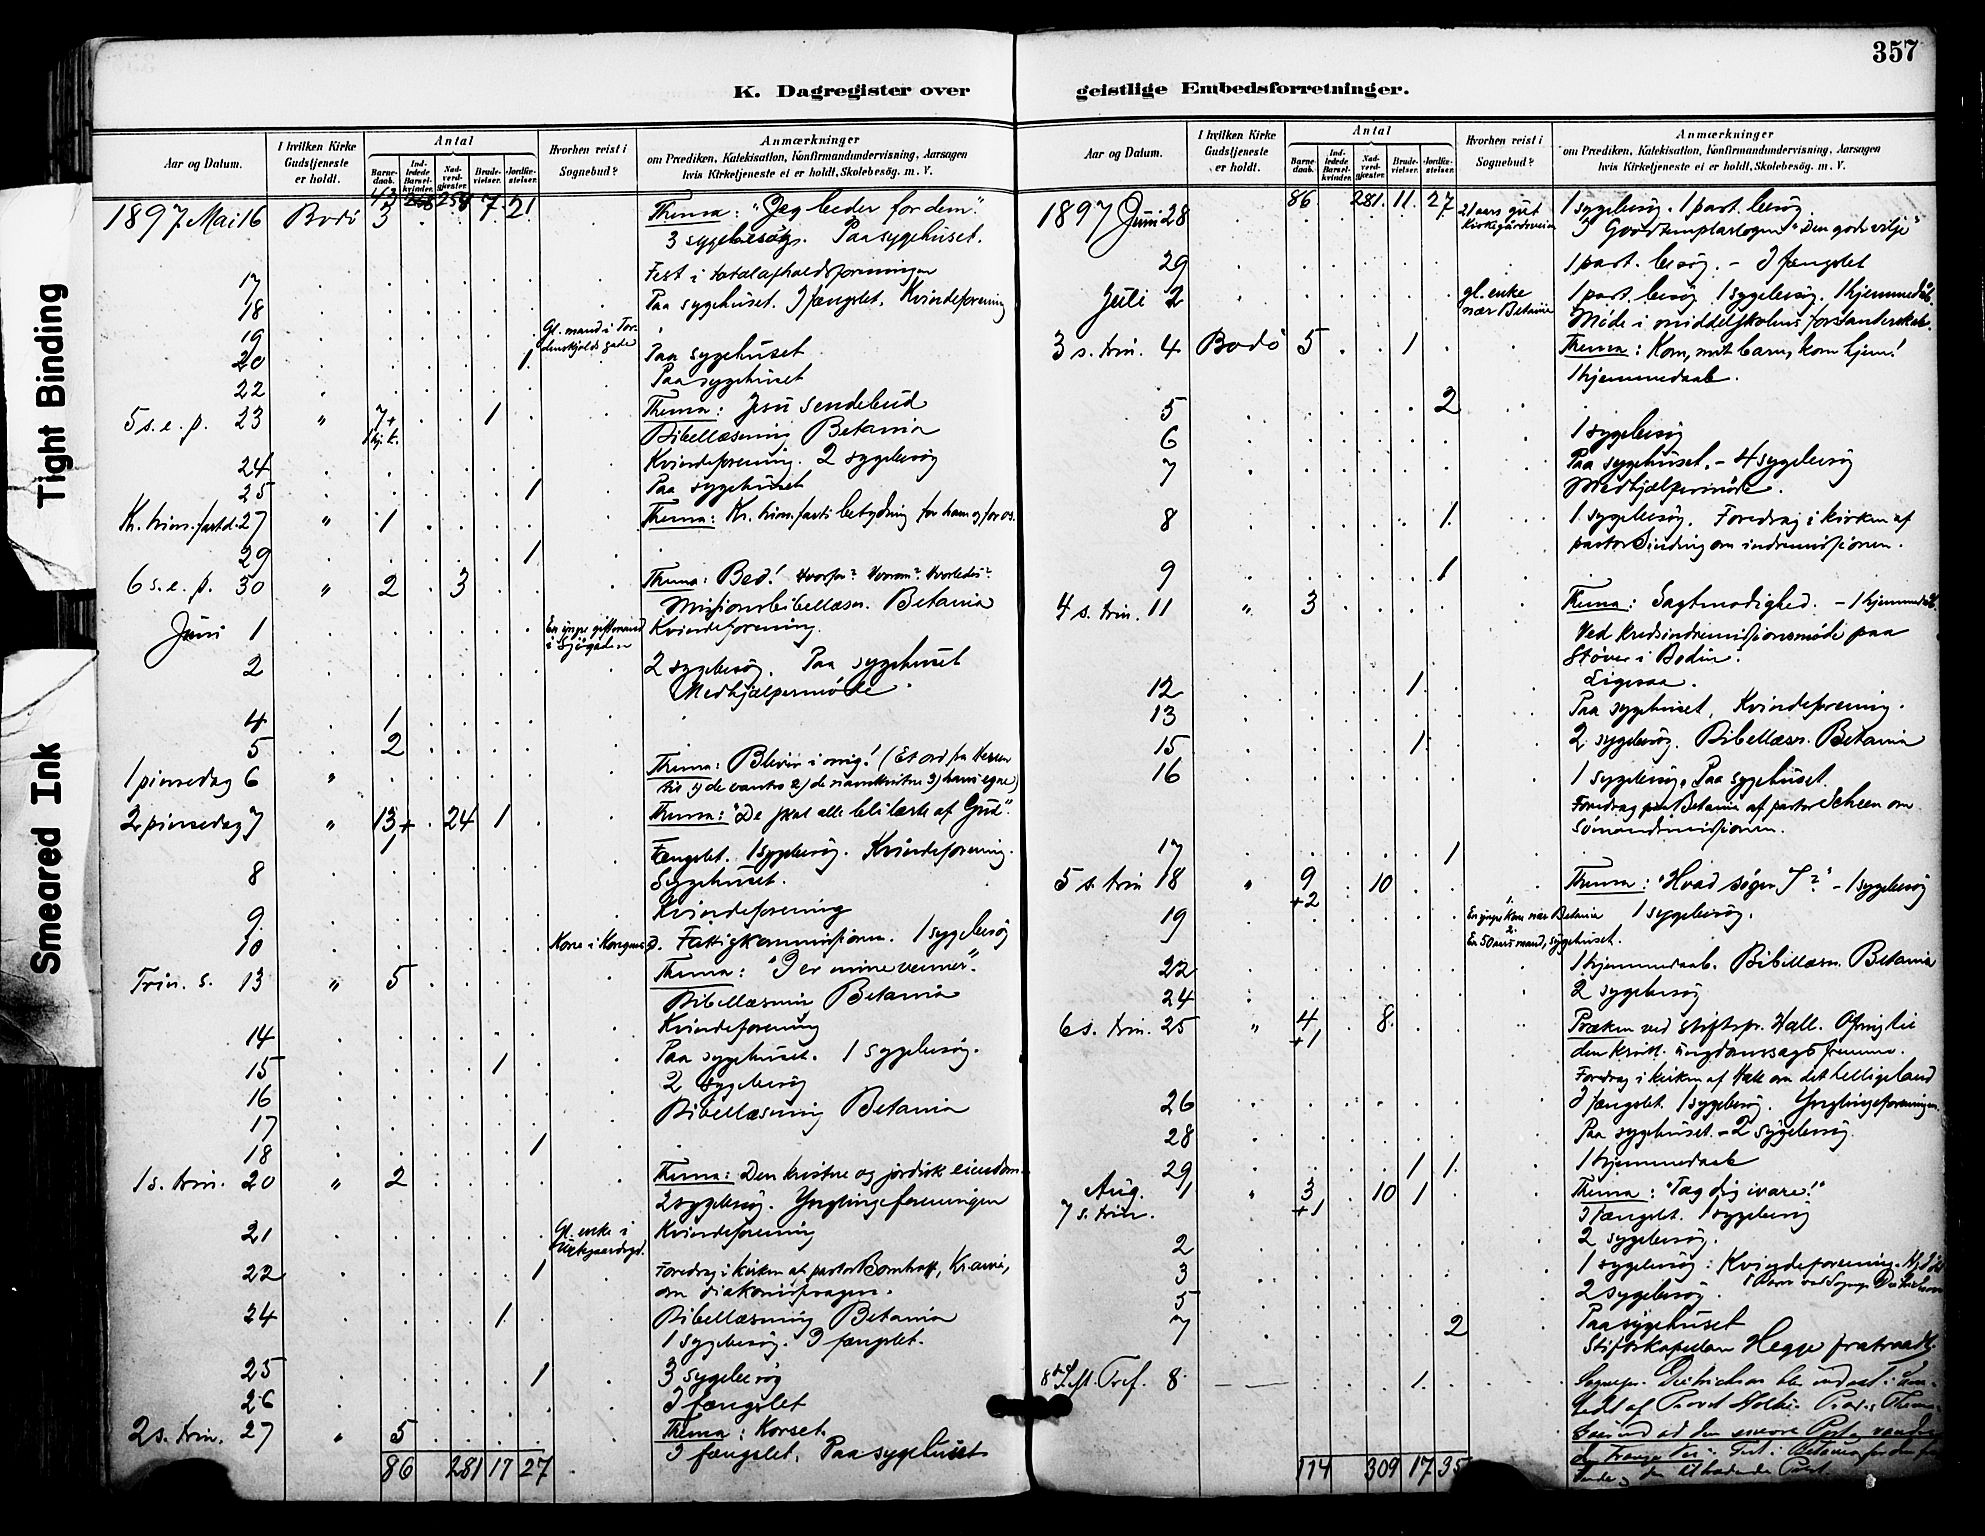 357
K. Dagregister over
geistlige Embedsforretninger.
Tight Binding
Smeared Ink
Aar og Datum.
I hvilken Kirke Gudstjeneste er holdt.
Antal
Barnedaab.
Indledede Barselkvinder.
Nadverdgjester.
Brudevielser.
Jordfæstelser.
Hvorhen reist i Sognebud?
Anmærkninger
om Prædiken, Katekisation, Konfirmandundervisning, Aarsagen
hvis Kirketjeneste ei er holdt, Skolebesøg. m. V.
7 21
1897 Mai 16 Bodö 3 Thema: "Jeg beder for dem".
3 sygebesøg. Paa sygehuset.
17 Fest i totalafholdsforeningen
18 Paa sygehuset. I fængslet. Kvindeforening
19 Gl. mand i Tordenskjolds gade
20 1 Paa sygehuset
22 Paa sygehuset
5 s. e. p. 23 " 7+ 1 Thema: Jesu sendebud
Bibellæsning Betania
24 Kvindeforening. 2 sygebesøg
25 1 Paa sygehuset
Kr. him. fartsd. 27 " 1 Thema: Kr. him. farts betydning for ham og for os.
29 1
6 s. e. p. 30 " 2 3 Thema: Bed! Hvorfor? Hvorom? Hvorledes?
Missionsbibellæsn. Betania
Juni 1 En yngre giftemand i Sjøgaden Kvindeforening.
2 2 sygebesøg. Paa sygehuset
Medhjælpermøde.
4 1
5 2
1 pinsedag 6 " Thema: Bliver i mig! (Et ord fra Herren
2 pinsedag 7 " 13+1 24 1 Thema: "De skal alle bli lærte af Gud".
Fængslet. 1 sygebesøg. Kvindeforening.
8 Sygehuset.
9 Kvindeforening
10 Fattigkommissionen. 1 sygebesøg
Trin. s. 13 " 5 Thema: "I er mine venner".
Bibellæsning Betania
14 Kvindeforening
15 1 Paa sygehuset. 1 sygebesøg.
16 2 sygebesøg
17 Bibellæsning Betania
18 1
1 s. trin. 20 " 2 Thema: Den kristne og jordisk eiendom.
2 sygebesøg. Ynglingeforeningen
21 Gl. enke i Kirkegaardsgd. Kvindeforening
22 1 Foredrag i kirken af pastor
om diakonissagen.
24 1 Bibellæsning Betania
1 sygebesøg. I fængslet.
25 1 3 sygebesøg
26 I fængslet
2 s. trin. 27 " 5 Thema: Korset.
I fængslet. Paa sygehuset
86 281 11 27
Aar og Datum.
I hvilken Kirke Gudstjeneste er holdt.
Antal
Barnedaab.
Indledede Barselkvinder.
Nadverdgjester.
Brudevielser.
Jordfæstelser.
Hvorhen reist i Sognebud?
Anmærkninger
om Prædiken, Katekisation, Konfirmandundervisning, Aarsagen
hvis Kirketjeneste ei er holdt, Skolebesøg. m. V.
86 281 11 27
1897 Juni 28 21 aars gut Kirkegårdsveien 1 sygebesøg. 1 part. besøg
I Goodtemplarlogen "Den gode vilje"
29 1 part. besøg. - I fængslet
Juli 2 gl. enke nær Betania 1 part. besøg 1 sygebesøg. 1 hjemmedåb.
Møde i middelskolens forstanderskab.
3 s. trin. 4 Bodö 5 1 Thema: Kom, mit barn, kom hjem!
1 hjemmedaab.
5 2
6 1 sygebesøg
7 Paa sygehuset. - 4 sygebesøg
Medhjælpermøde.
8 1 1 sygebesøg. Foredrag i kirken af
pastor Sinding om indremissionen.
9 1
4 s. trin. 11 " 3 Thema: Sagtmodighed. - 1 hjemmedåb.
Ved kredsindremissionsmøde paa
Støver i Bodin.
12 1 Ligesaa.
13 Paa sygehuset, Kvindeforening.
15 1 2 sygebesøg. Bibellæsn. Betania
16 1 sygebesøg. Paa sygehuset.
Foredrag paa Betania af pastor Scheen om
sømandsmissionen.
17 1
5 s. trin 18 " 9 +2 10 Thema: "Hvad søger I?" - 1 sygebesøg
19 En yngre kone nær Betania 1 sygebesøg.
En 50 aars mand, sygehuset.
22 1 hjemmedaab. Bibellæsn. Betania
24 2 sygebesøg
6 s. trin. 25 " 4 +1 8 Præken ved stiftspr. Hall.
Foredrag i kirken af Hall om det hellige land
26 I fængslet. 1 sygebesøg. Ynglingeforeningen.
28 Paa sygehuset. - 2 sygebesøg.
29 1 1 1 hjemmedaab
Aug. 1 " 3 +1 10 1 Thema: "Tag dig ivare!"
7 s. trin. I fængslet. 1 sygebesøg
2 2 sygebesøg.
3 1 sygebesøg. Kvindeforening.
5 2 sygebesøg.
7 2 Paa sygehuset
Stiftskapellan Hegge fratraadt.
8 1
114 309 17 35